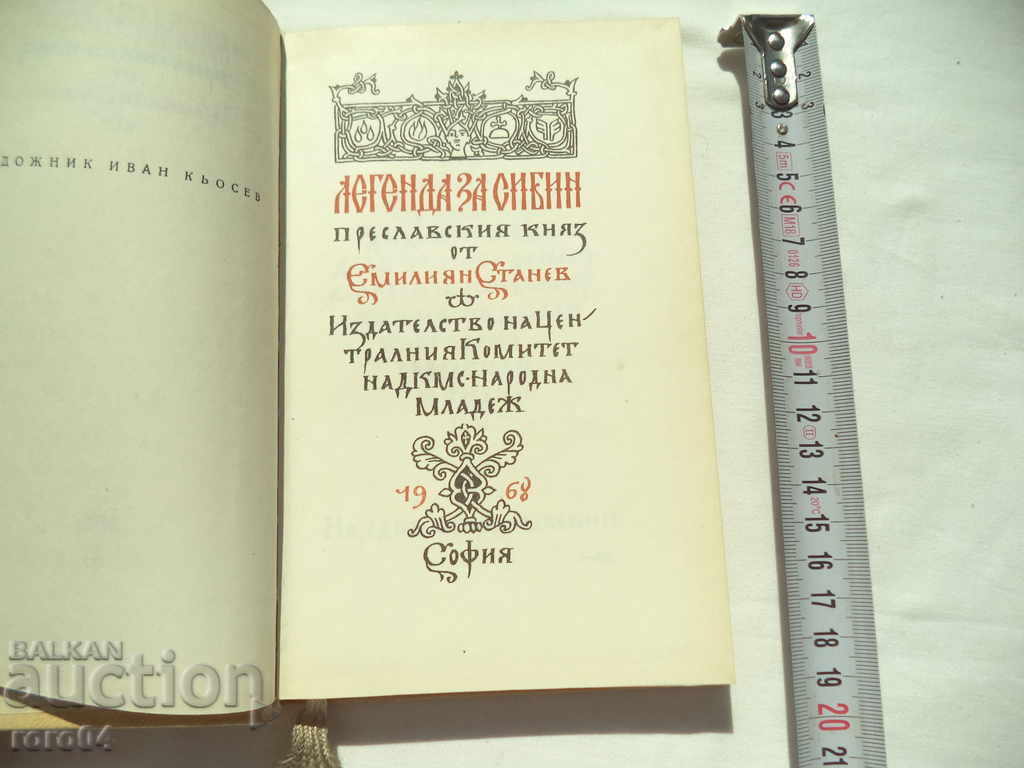 ИВАН КЬОСЕВ
ЛЕГЕНДА ЗА СИБИН
ПРЕСЛАВСКИЯ КНЯЗ
ОТ
ЕМИЛИЯН СТАНЕВ
ИЗДАТЕЛСТВО НА ЦЕН-
ТРАЛНИЯ КОМИТЕТ
НА ДКМС · НАРОДНА
МЛАДЕЖ
1968
СОФИЯ
3
4
5
6
7
8
9
10
11
12
13
14
15
16
17
18
19
20
21
5m
CE
M18
0126
HD
II
20°C
BALKAN
auction
roro04